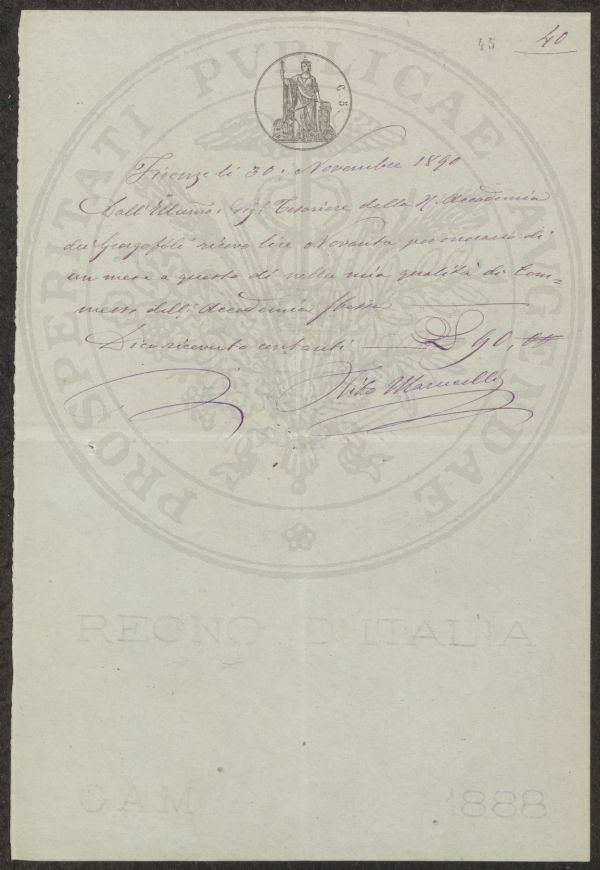 45 40
C. 5.
Firenze li 30. Novembre 1890
Dall' Illmo. Sig. Tesoriere della R. Accademia
dei Georgofili ricevo lire Novanta per onorario di
un mese a questo dì nella mia qualità di Com=
messo dell' Accademia stessa
Dico ricevuto contanti £ 90,
Marucelli
PROSPERITATI PVBLICAE AVGENDAE
REGNO D'ITALIA
1888